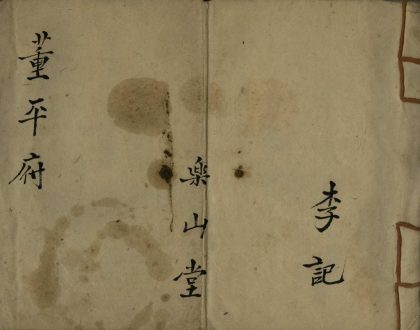 李記
楽山堂
董平府